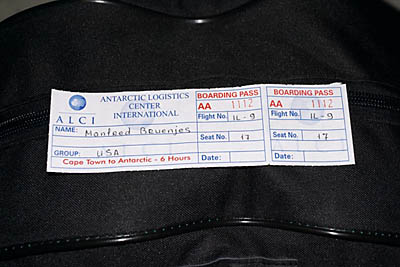 ANTARCTIC LOGISTICS
CENTER
INTERNATIONAL
ALCI
NAME: Manfeed Bruenjes
GROUP: USA
Cape Town to Antarctic - 6 Hours
BOARDING PASS
AA 1112
Flight No. IL-9
Seat No. 17
Date:
BOARDING PASS
AA 1112
Flight No. IL-9
Seat No. 17
Date: